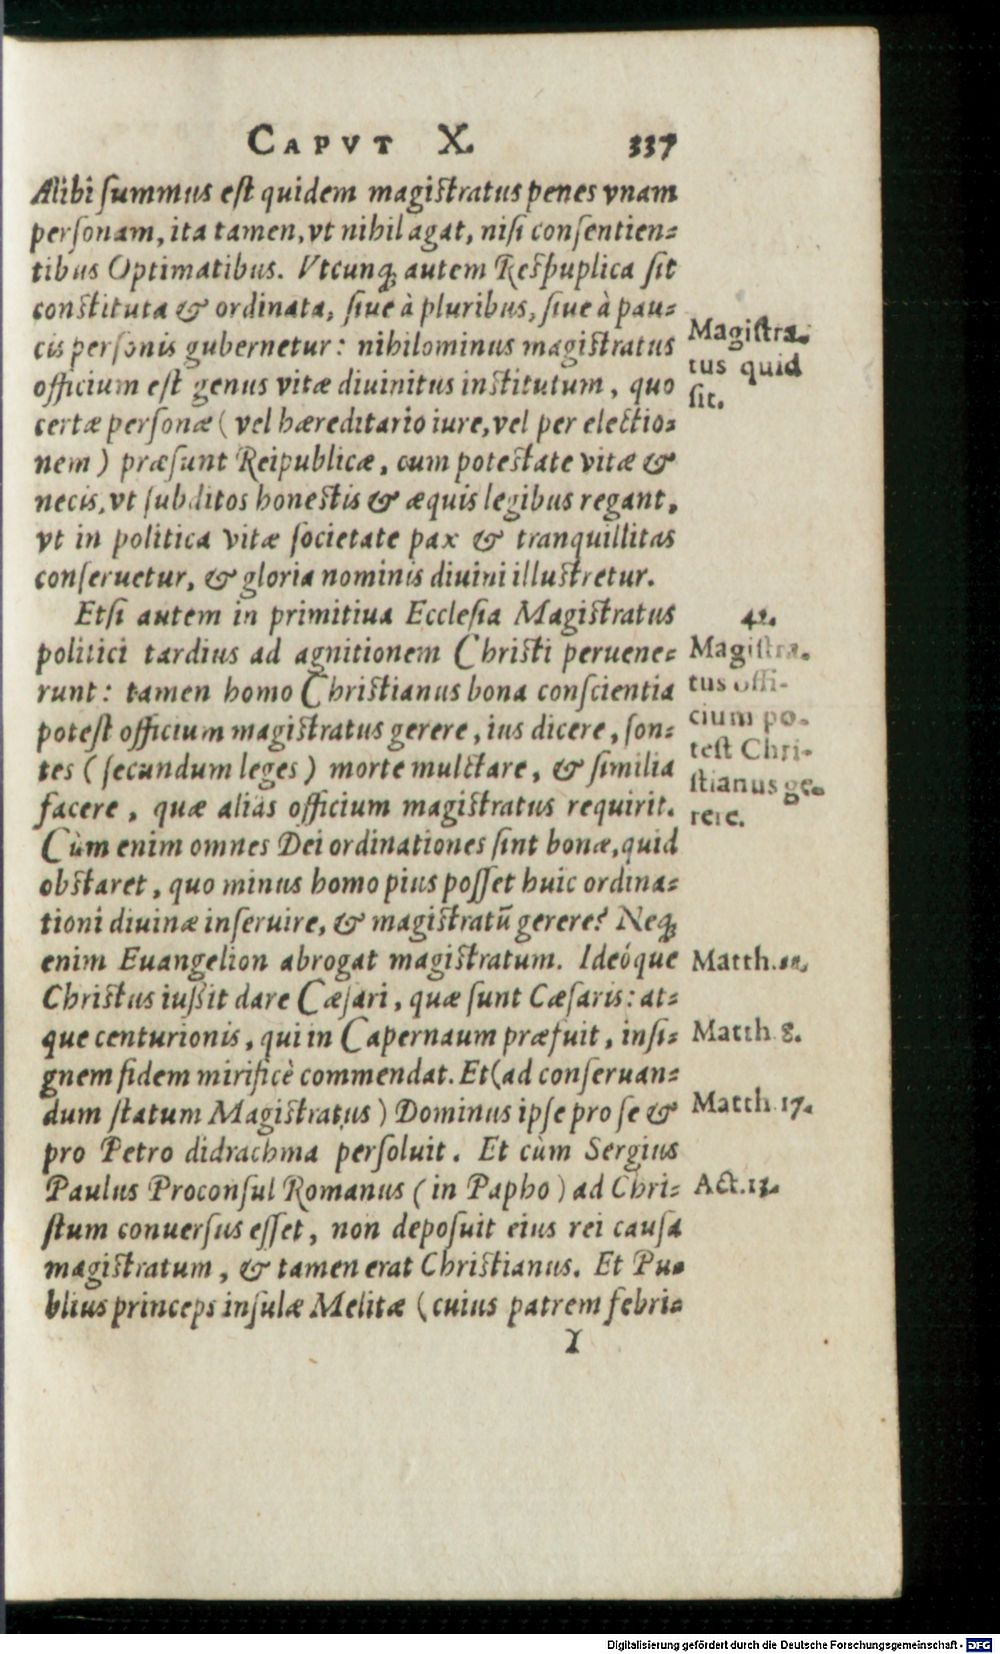 CAPVT X. 337
Alibi ſummus eſt quidem magiſtratus penes vnam
perſonam, ita tamen, vt nihil agat, niſi conſentien-
tibus Optimatibus. Vtcunq; autem Reſpuplica ſit
conſtituta & ordinata, ſiue à pluribus, ſiue à pau-
cis perſonis gubernetur: nihilominus magiſtratus
officium eſt genus vitæ diuinitus inſtitutum, quo
certæ perſonæ (vel hæreditario iure, vel per electio-
nem) præſunt Reipublicæ, cum poteſtate vitæ &
necis, vt ſubditos honeſtis & æquis legibus regant,
vt in politica vitæ ſocietate pax & tranquillitas
conſeruetur, & gloria nominis diuini illuſtretur.
Magiſtra-
tus quid
ſit.
Etſi autem in primitiua Eccleſia Magiſtratus
politici tardius ad agnitionem Chriſti peruene-
runt: tamen homo Chriſtianus bona conſcientia
poteſt officium magiſtratus gerere, ius dicere, ſon-
tes (ſecundum leges) morte mulctare, & ſimilia
facere, quæ alias officium magiſtratus requirit.
Cùm enim omnes Dei ordinationes ſint bonæ, quid
obſtaret, quo minus homo pius poſſet huic ordina-
tioni diuinæ inſeruire, & magiſtratū gerere? Neq;
enim Euangelion abrogat magiſtratum. Ideóque
Chriſtus iußit dare Cæſari, quæ ſunt Cæſaris: at-
que centurionis, qui in Capernaum præfuit, inſi-
gnem fidem mirificè commendat. Et (ad conſeruan-
dum ſtatum Magiſtratus) Dominus ipſe pro ſe &
pro Petro didrachma perſoluit. Et cùm Sergius
Paulus Proconſul Romanus (in Papho) ad Chri-
ſtum conuerſus eſſet, non depoſuit eius rei cauſa
magiſtratum, & tamen erat Chriſtianus. Et Pu-
blius princeps inſulæ Melitæ (cuius patrem febri-
42.
Magiſtra-
tus offi-
cium po-
teſt Chri-
ſtianus ge-
rere.
Matth. 22.
Matth. 8.
Matth. 17.
Act. 13.
Y
Digitalisierung gefördert durch die Deutsche Forschungsgemeinschaft - DFG